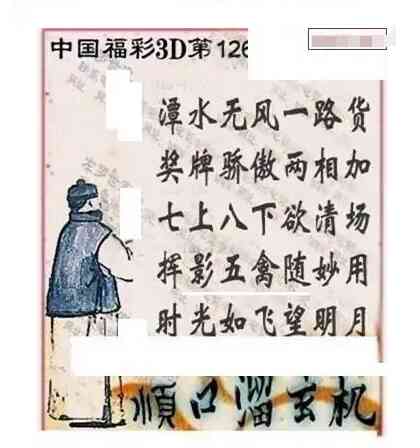 中国福彩3D第126
潭水无风一路货
奖牌骄傲两相加
七上八下欲清场
挥影五禽随妙用
时光如飞望明月
顺口溜玄机